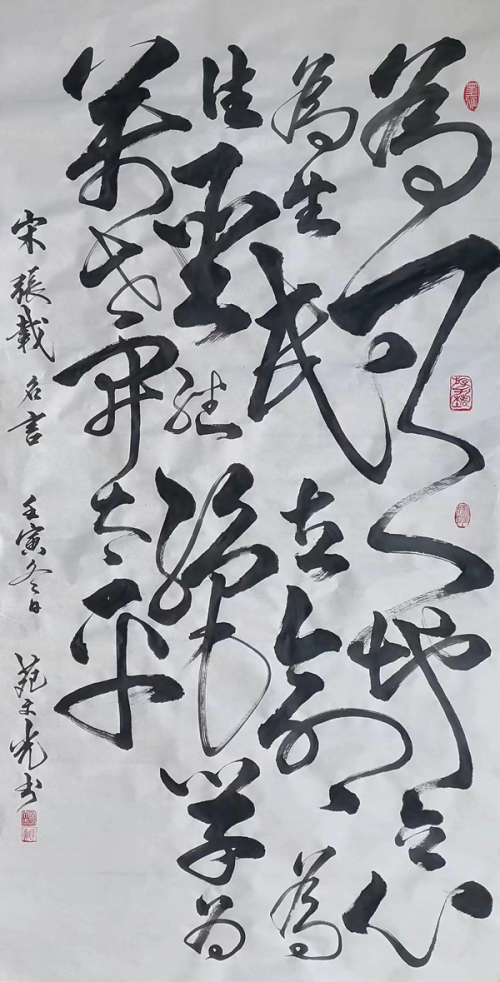 為天地立心
為生民立命為
往聖继絕学为
萬世开太平
宋張載名言 壬寅冬日 苑文光书